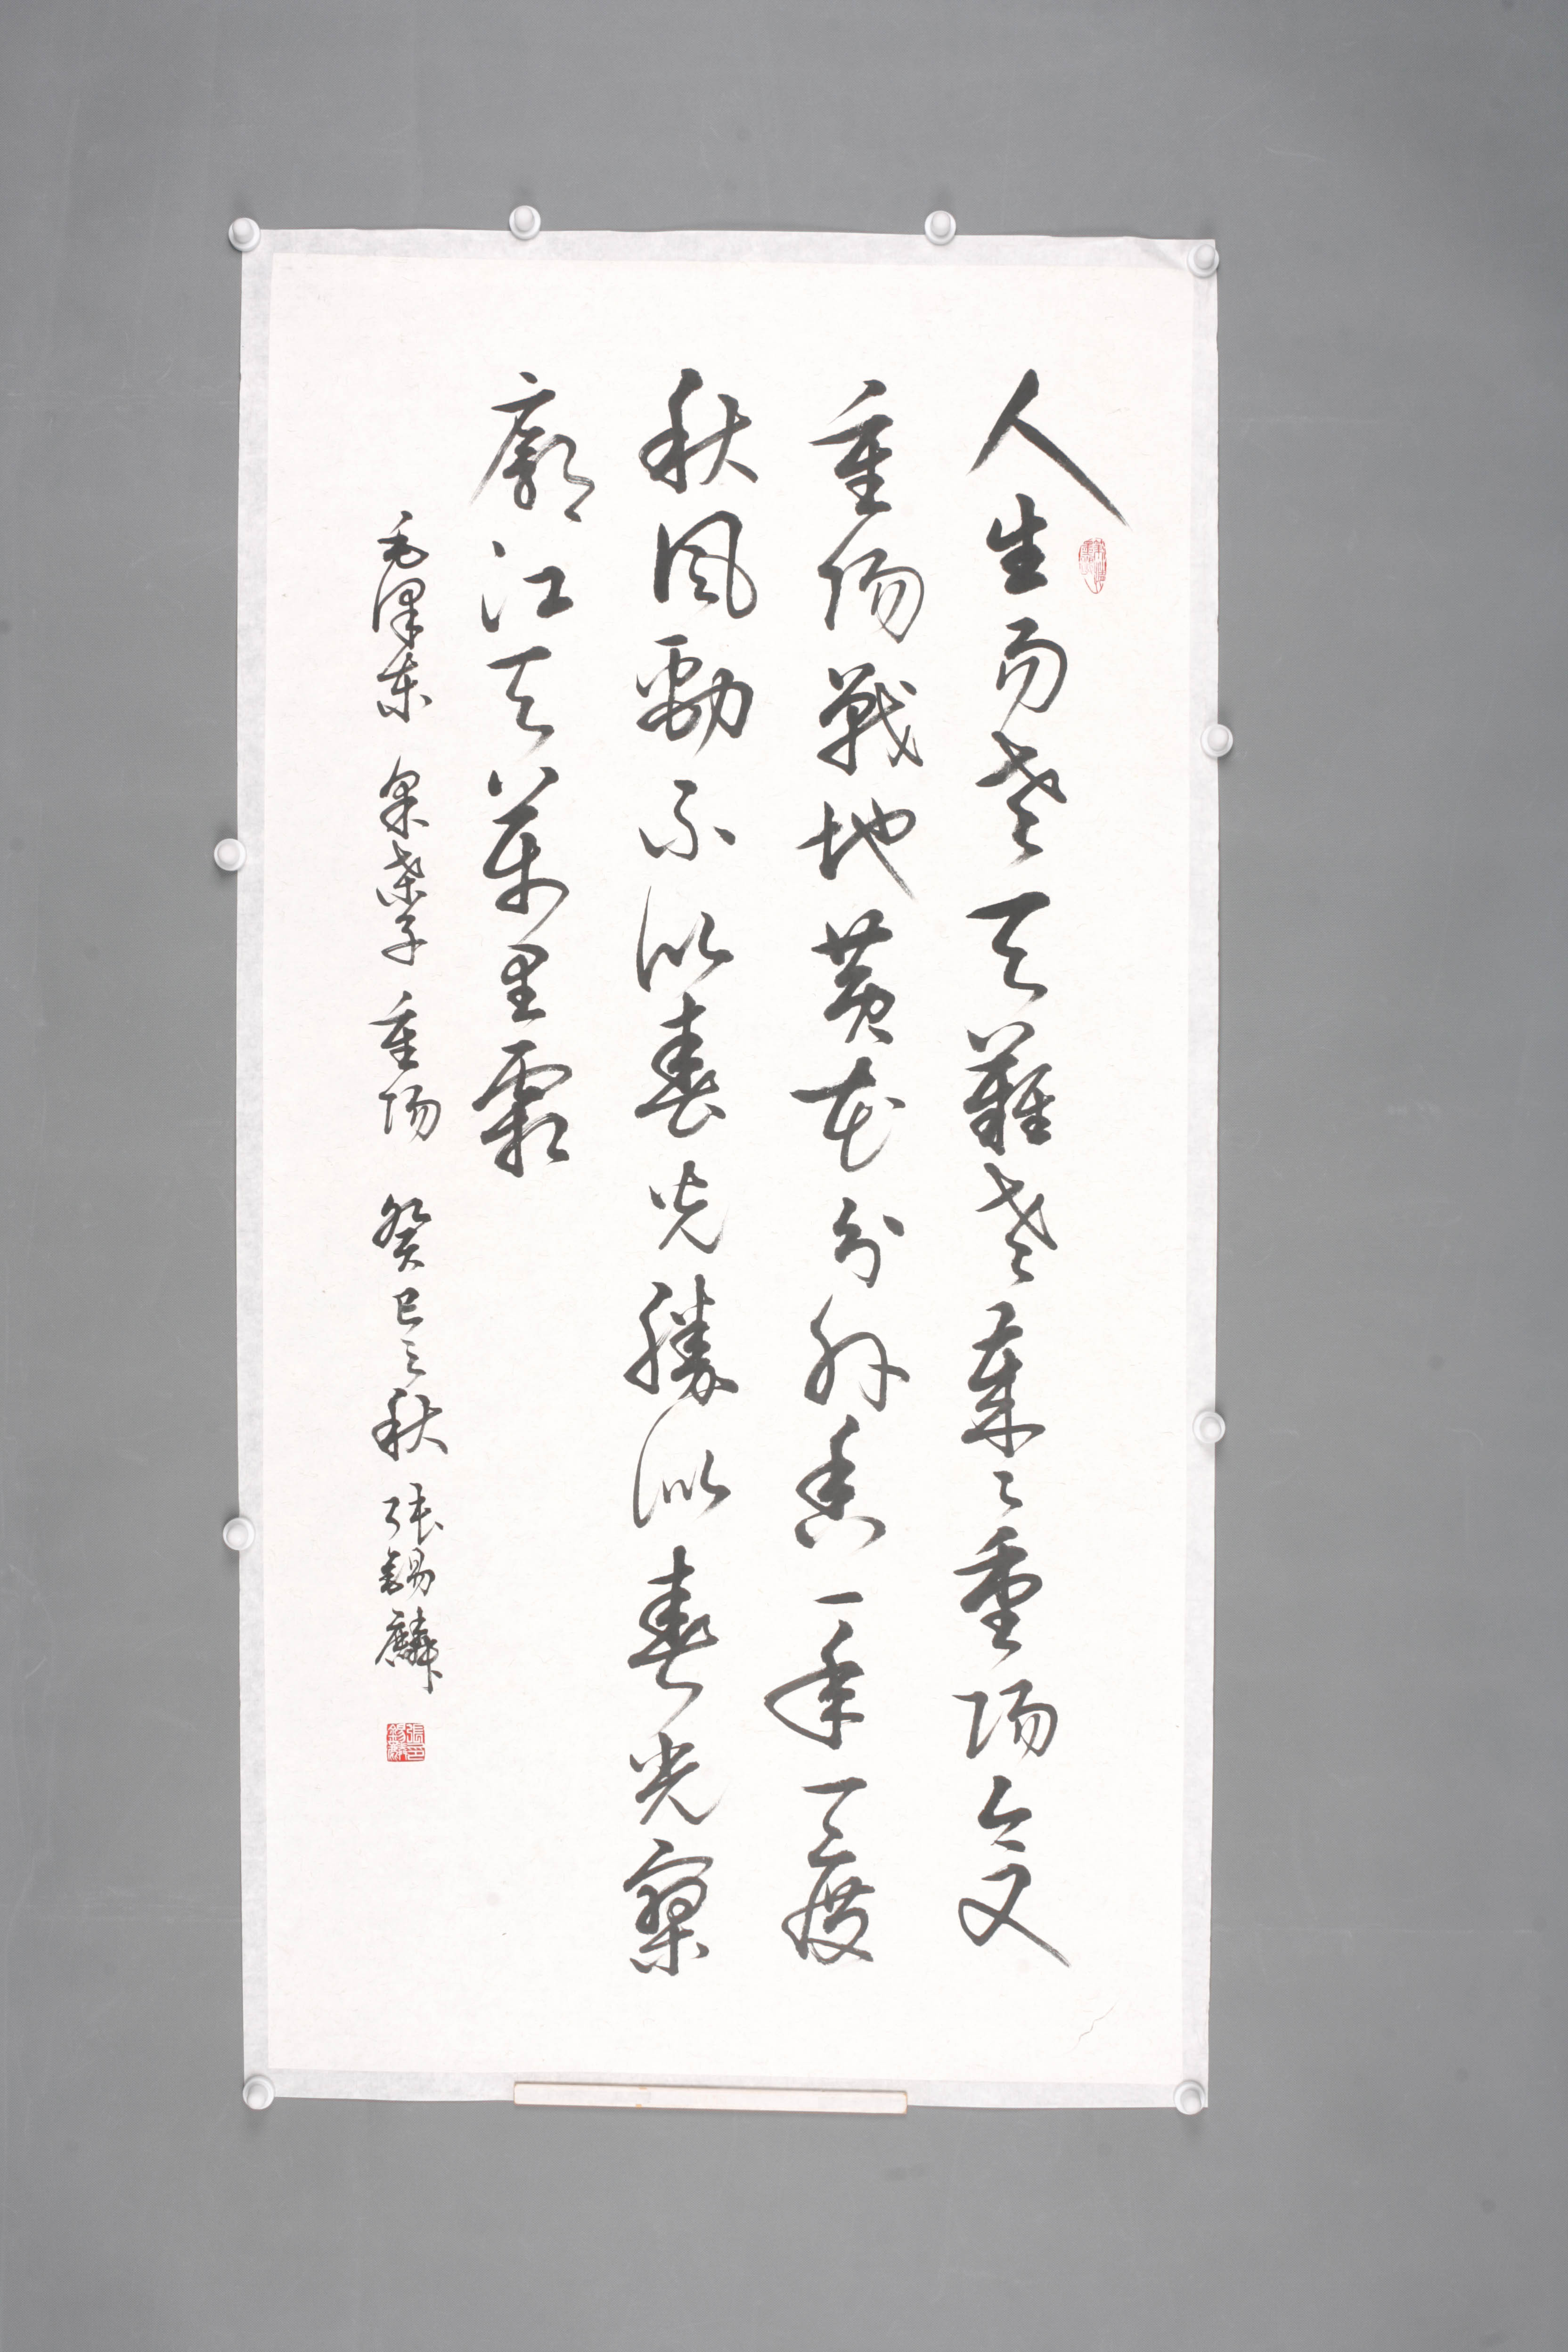 人生易老天難老歲〻重陽今又
重陽戰地黃花分外香一年一度
秋風勁不似春光勝似春光寥
廓江天萬里霜
毛澤東 采桑子 重陽 癸巳之秋 張錫麟